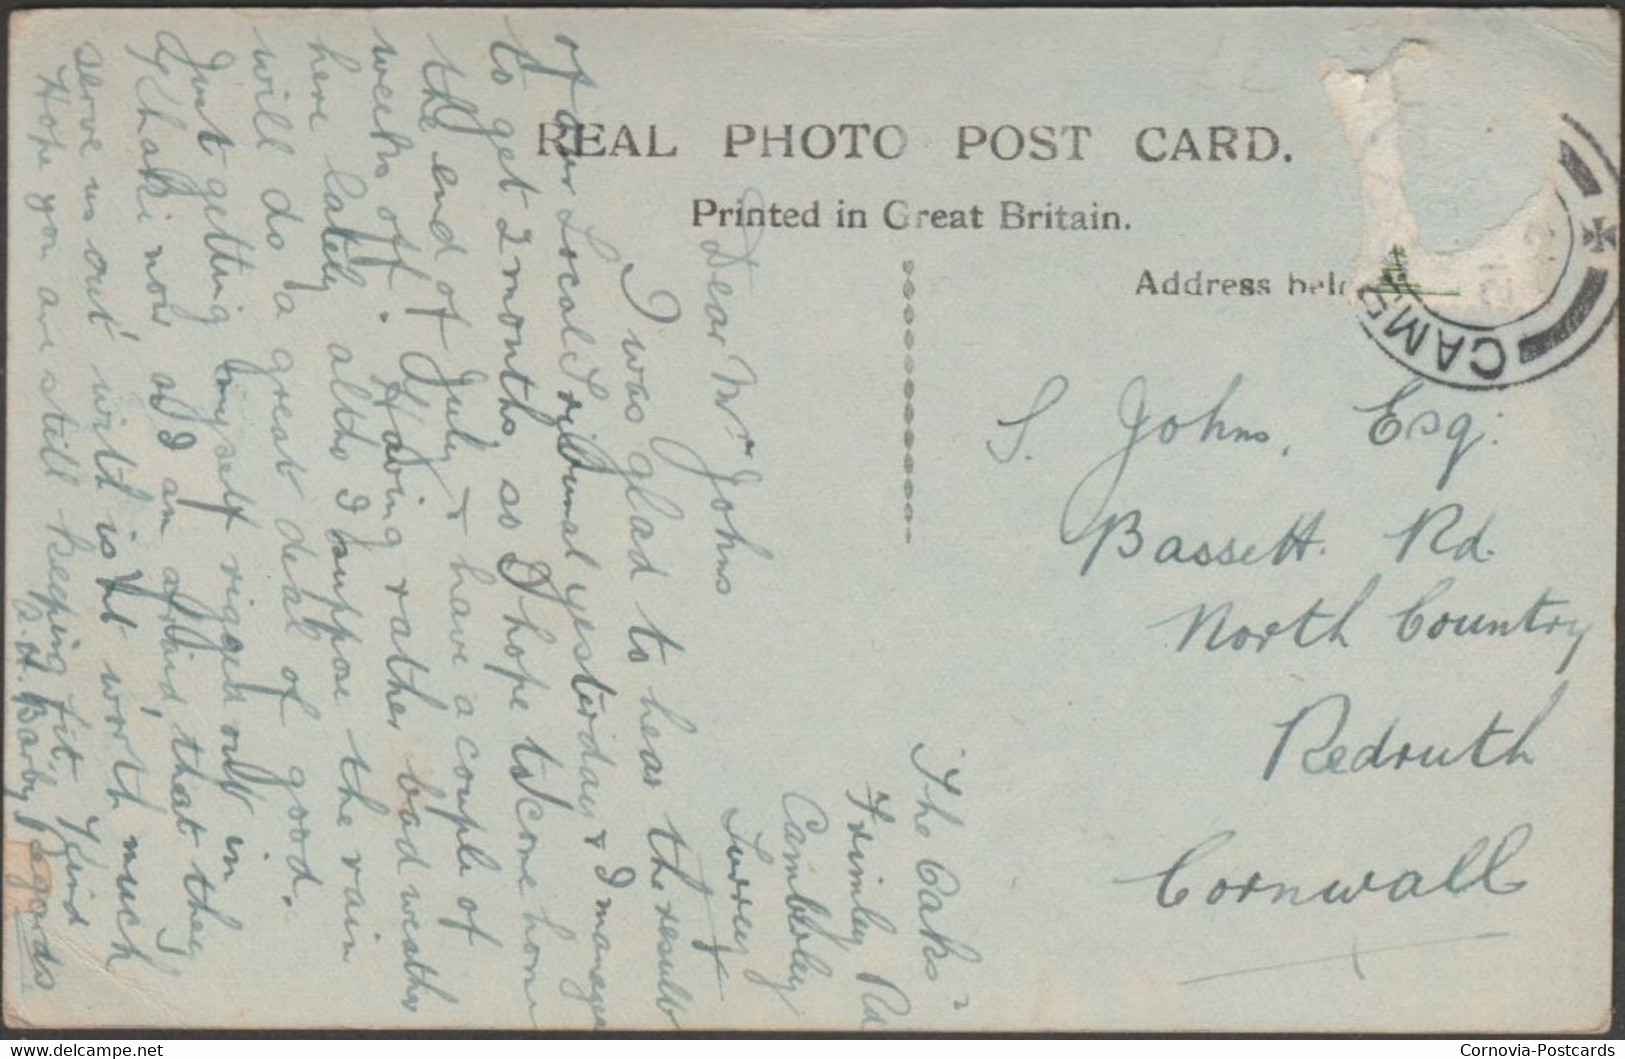 REAL PHOTO POST CARD.
Printed in Great Britain.
Address below
CAMB
S. Johns, Esq.
Bassett. Rd.
North Country
Redruth
Cornwall
"The Oaks"
Frimley Rd
Camberley
Surrey
Dear Mr. Johns
I was glad to hear the result
of our Local Tribunal yesterday & I manage
to get 2 months, so I hope to come home
the end of July & have a couple of
weeks off. Having rather bad weather
here lately altho I suppose the rain
will do a great deal of good.
Just getting myself rigged out in
khaki now as I am afraid, that they
serve us out with is not worth much
Hope you are still keeping fit, Kind
Regards
A. H. Barby
Cornovia-Postcards